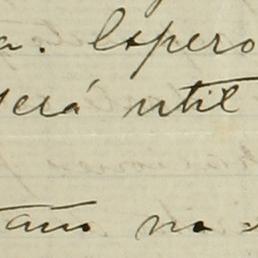 a. Espero
será util
tão no